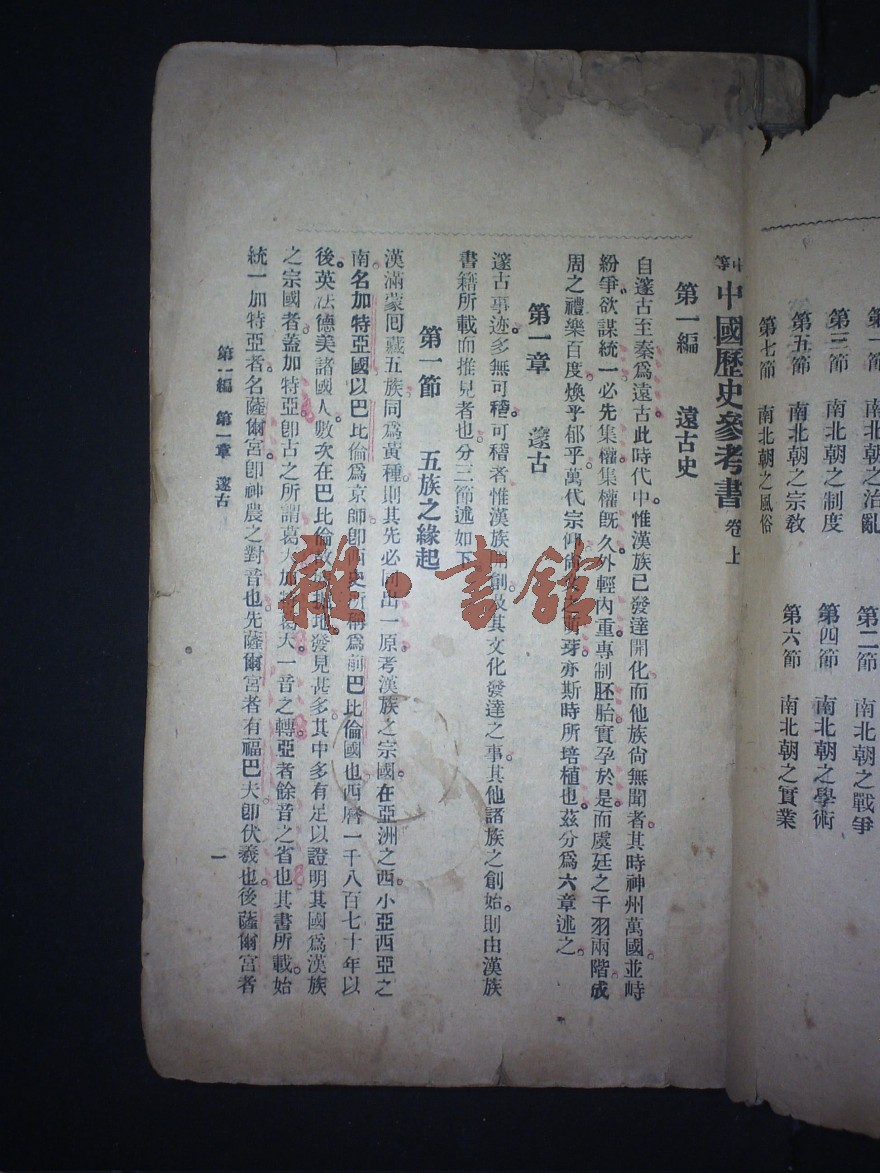 第一節 南北朝之治亂
第二節 南北朝之戰爭
第三節 南北朝之制度
第四節 南北朝之學術
第五節 南北朝之宗教
第六節 南北朝之實業
第七節 南北朝之風俗
中等中國歷史參考書 卷上
第一編 遠古史
自邃古至秦爲遠古此時代中。惟漢族已發達開化而他族尙無聞者。其時神州萬國並峙
紛爭。欲謀統一必先集權集權旣久。外輕內重。專制胚胎實孕於是。而虞廷之干羽兩階成
周之禮樂百度。煥乎郁乎。萬代宗仰。之萌芽。亦斯時所培植也。茲分爲六章述之。
第一章 邃古
邃古事迹。多無可稽。可稽者惟漢族開創及其文化發達之事。其他諸族之創始。則由漢族
書籍所載而推見者也。分三節述如下
第一節 五族之緣起
漢滿蒙回藏五族。同爲黃種。則其先必同出一原。考漢族之宗國。在亞洲之西。小亞西亞之
南。名加特亞國以巴比倫爲京師卽西史所稱爲前巴比倫國也。西曆一千八百七十年以
後。英法德美諸國人。數次在巴比倫故掘地。發見甚多。其中多有足以證明其國爲漢族
之宗國者。蓋加特亞卽古之所謂葛天。加特葛天。一音之轉。亞者餘音之省也。其書所載始
統一加特亞者。名薩爾宮卽神農之對音也。先薩爾宮者有福巴夫卽伏羲也。後薩爾宮者
第一編 第一章 邃古
一
雜·書館